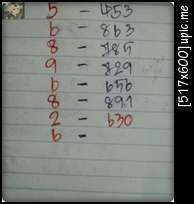 5 - 453
6 - 863
8 - 785
9 - 829
6 - 656
8 - 891
2 - 630
6 -
[517x600]upic.me